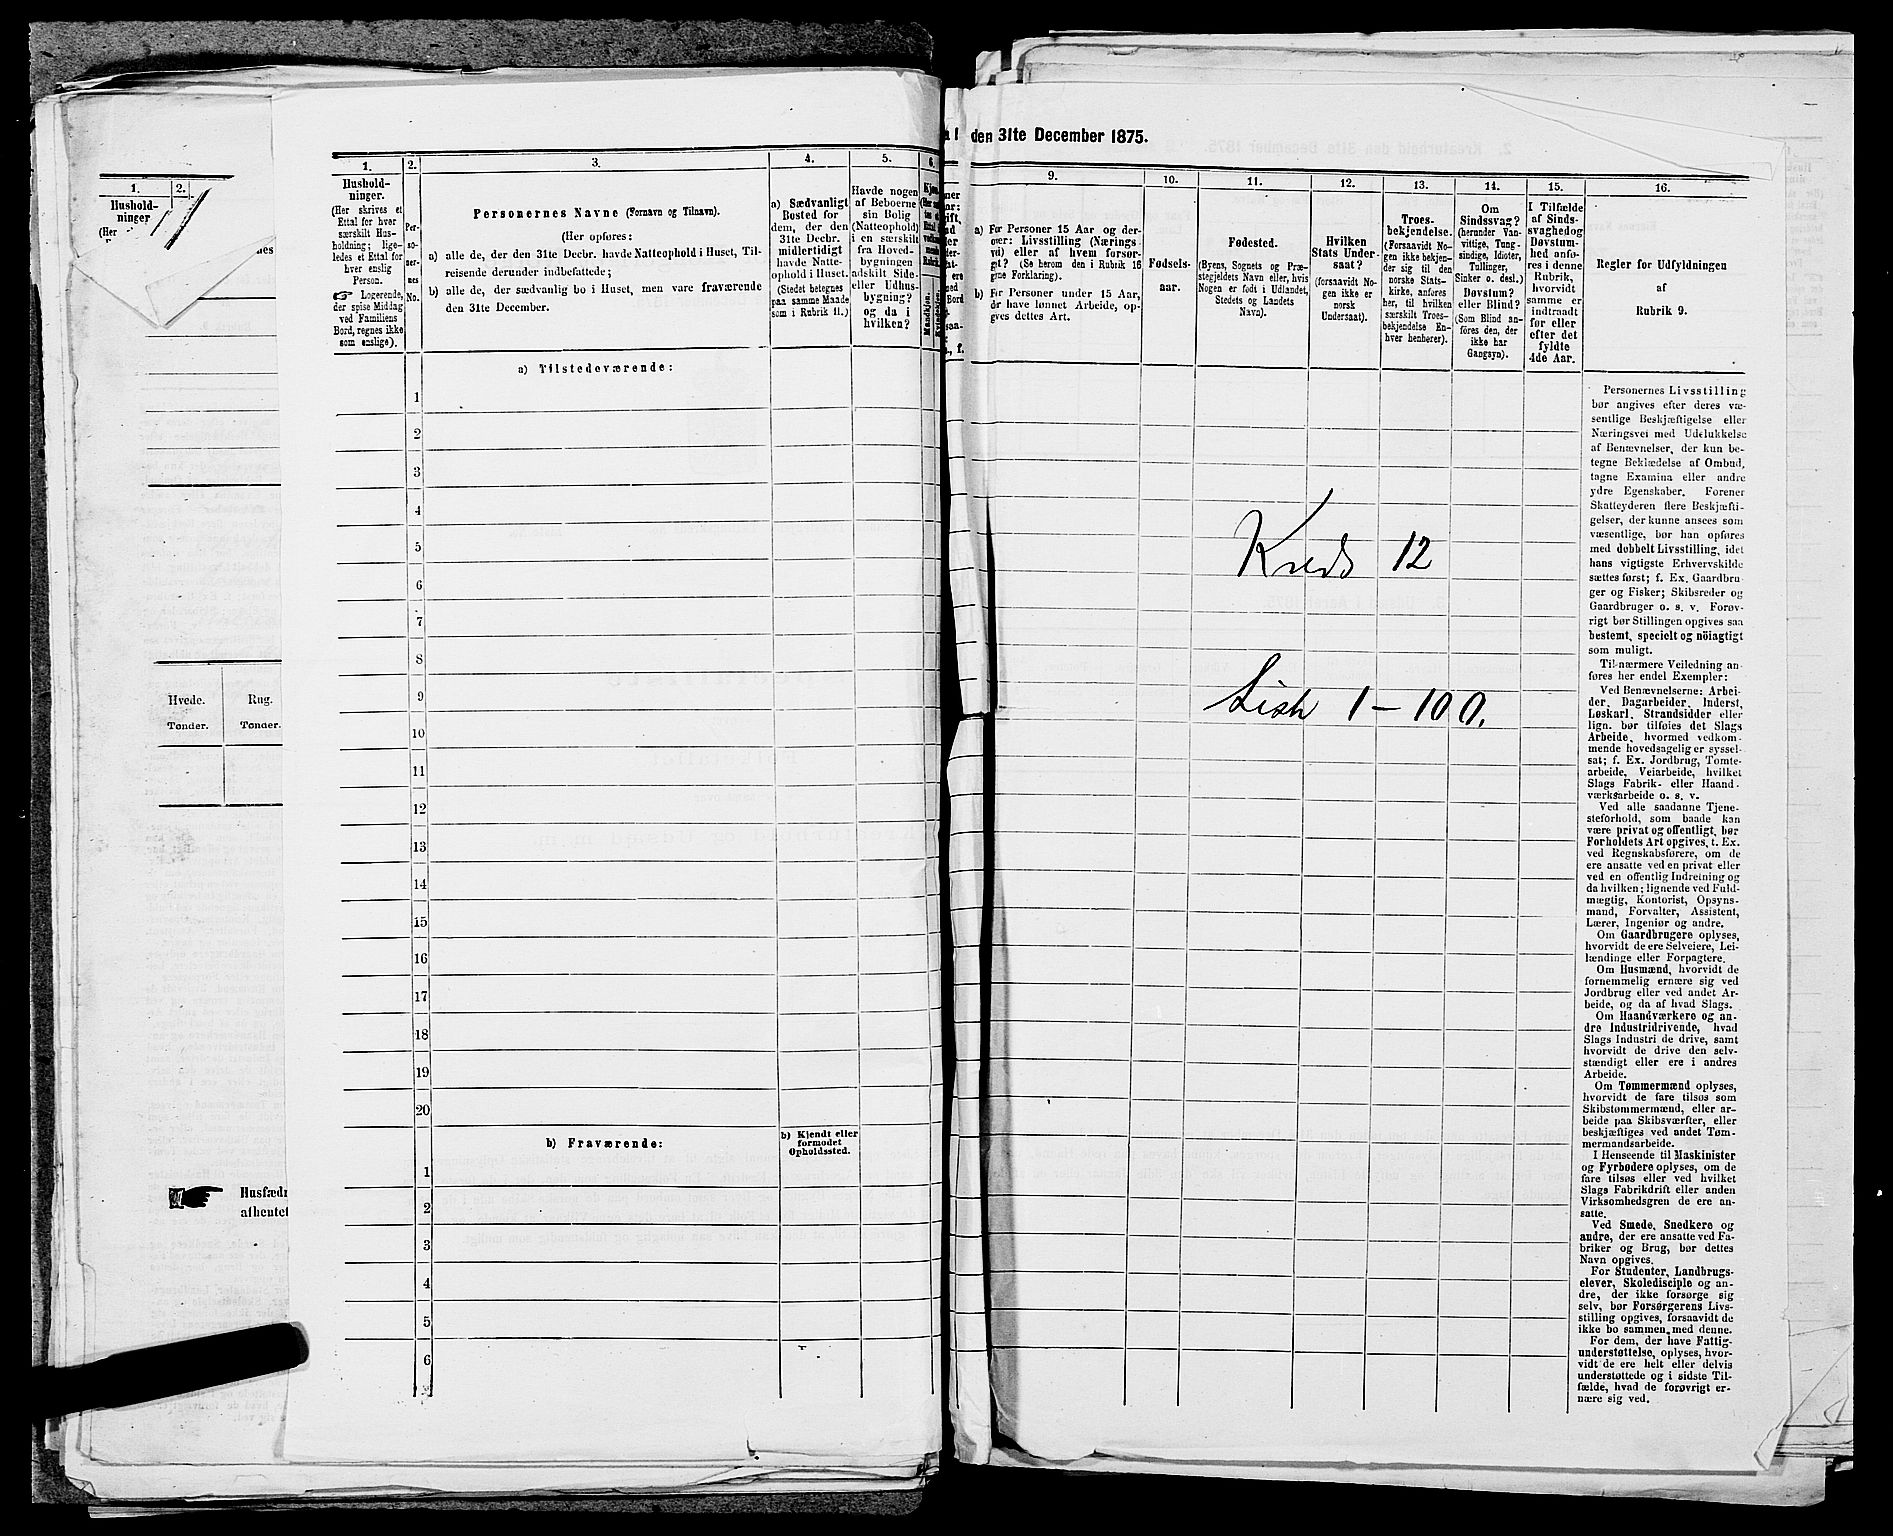 1.
2.
Hushold-
ninger
(Her
Hvede.
Rug.
Tønder.
Tønder.
Husfædr
afhentet
1.
2.
3.
4.
5.
6.
Hushold-
ninger.
(Her skrives et
Ettal for hver
særskilt Hus-
holdning; lige-
ledes et Ettal for
hver enslig
Person.
☞ Logerende,
der spise Middag
ved Familiens
Bord, regnes ikke
som enslige).
Per-
so-
ner-
nes
No.
Personernes Navne (Fornavn og Tilnavn).
(Her opføres:
a) alle de, der den 31te Decbr. havde Natteophold i Huset, Til-
reisende derunder indbefattede;
b) alle de, der sædvanlig bo i Huset, men vare fraværende
den 31te December.
a) Sædvanligt
Bosted for
dem, der den
31te Decbr.
midlertidigt
havde Natte-
ophold i Huset.
(Stedet betegnes
paa samme Maade
som i Rubrik 11.)
Havde nogen
af Beboerne
sin Bolig
(Natteophold)
i en særskilt
fra Hoved-
bygningen
adskilt Side-
eller Udhus-
bygning?
og da i
hvilken?
Kjøn.
Mandkjøn.
Kvindekjøn.
a) Tilstedeværende:
1
2
3
4
5
6
7
8
9
10
11
12
13
14
15
16
17
18
19
20
b) Fraværende:
b) Kjendt eller
formodet
Opholdssted.
1
2
3
4
5
6
den 31te December 1875.
9.
10.
11.
12.
13.
14.
15.
16.
a) For Personer 15 Aar og der-
over: Livsstilling (Nærings-
vei) eller af hvem forsør-
get? (Se herom den i Rubrik 16
gne Forklaring).
b) For Personer under 15 Aar,
ør have lønnet Arbeide, op-
gives dettes Art.
Fødsels-
aar.
Fødested.
(Byens, Sognets og Præ-
stegjeldets Navn eller, hvis
Nogen er født i Udlandet,
Stedets og Landets
Navn).
Hvilken
Stats Under-
saat?
(forsaavidt No-
gen ikke er
norsk
Undersaat).
Troes-
bekjendelse.
(Forsaavidt No-
gen ikke bekjen-
der sig til den
norske Stats-
kirke, anføres
her, til hvilken
særskilt Troes-
bekjendelse En-
hver henhører).
Om
Sindssvag?
(herunder Van-
vittige, Tung-
sindige, Idioter,
Tullinger,
Sinker o. desl.)
Døvstum?
eller Blind?
(Som Blind an-
føres den, der
ikke har
Gangsyn).
I Tilfælde
af Sinds-
svaghed og
Døvstum-
hed anfø-
res i denne
Rubrik,
hvorvidt
samme er
indtraadt
før eller
efter det
fyldte
4de Aar.
Regler for Udfyldningen
af
Rubrik 9.
Kreds 12
Liste 1 - 100.
Personernes Livsstilling
bør angives efter deres væ-
sentlige Beskjæftigelse eller
Næringsvei med Udelukkelse
af Benævnelser, der kun be-
tegne Beklædelse af Ombud,
tagne Examina eller andre
ydre Egenskaber. Forener
Skatteyderen flere Beskjæfti-
gelser, der kunne ansees som
væsentlige, bør han opføres
med dobbelt Livsstilling, idet
hans vigtigste Erhvervskilde
sættes først; f. Ex. Gaardbru-
ger og Fisker; Skibsreder og
Gaardbruger o. s. v. Forøv-
rigt bør Stillingen opgives saa
bestemt, specielt og nöiagtigt
som muligt.
Til nærmere Veiledning an-
føres her endel Exempler:
Ved Benævnelserne: Arbei-
der, Dagarbeider, Inderst,
Løskarl, Strandsidder eller
lign. bør tilføies det Slags
Arbeide, hvormed vedkom-
mende hovedsagelig er syssel-
sat; f. Ex. Jordbrug, Tomte-
arbeide, Veiarbeide, hvilket
Slags Fabrik- eller Haand-
værksarbeide o. s. v.
Ved alle saadanne Tjene-
steforhold, som baade kan
være privat og offentligt, bør
Forholdets Art opgives, t. Ex.
ved Regnskabsførere, om de
ere ansatte ved en privat eller
ved en offentlig Indretning og
da hvilken; lignende ved Fuld-
mægtig, Kontorist, Opsyns-
mand, Forvalter, Assistent,
Lærer, Ingeniør og andre.
Om Gaardbrugere oplyses,
hvorvidt de ere Selveiere, Lei-
lændinge eller Forpagtere.
Om Husmænd, hvorvidt de
fornemmelig ernære sig ved
Jordbrug eller ved andet Ar-
beide, og da af hvad Slags.
Om Haandværkere og an-
dre Industridrivende, hvad
Slags Industri de drive, samt
hvorvidt de drive den selv-
stændigt eller ere i andres
Arbeide.
Om Tømmermænd oplyses,
hvorvidt de fare tilsøs som
Skibstømmermænd, eller ar-
beide paa Skibsværfter, eller
beskjæftiges ved andet Tøm-
mermandsarbeide.
I Henseende til Maskinister
og Fyrbødere oplyses, om de
fare tilsøs eller ved hvilket
Slags Fabrikdrift eller anden
Virksomhedsgren de ere an-
satte.
Ved Smede, Snedkere og
andre, der ere ansatte ved Fa-
briker og Brug, bør dettes
Navn opgives.
For Studenter, Landbrugs-
elever, Skoledisciple og an-
dre, der ikke forsørge sig
selv, bør Forsørgerens Livs-
stilling opgives, forsaavidt de
ikke bo sammen med denne.
For dem, der have Fattig-
understøttelse, oplyses, hvor-
vidt de ere helt eller delvis
understøttede og i sidste Til-
fælde, hvad de forøvrigt er-
nære sig ved.